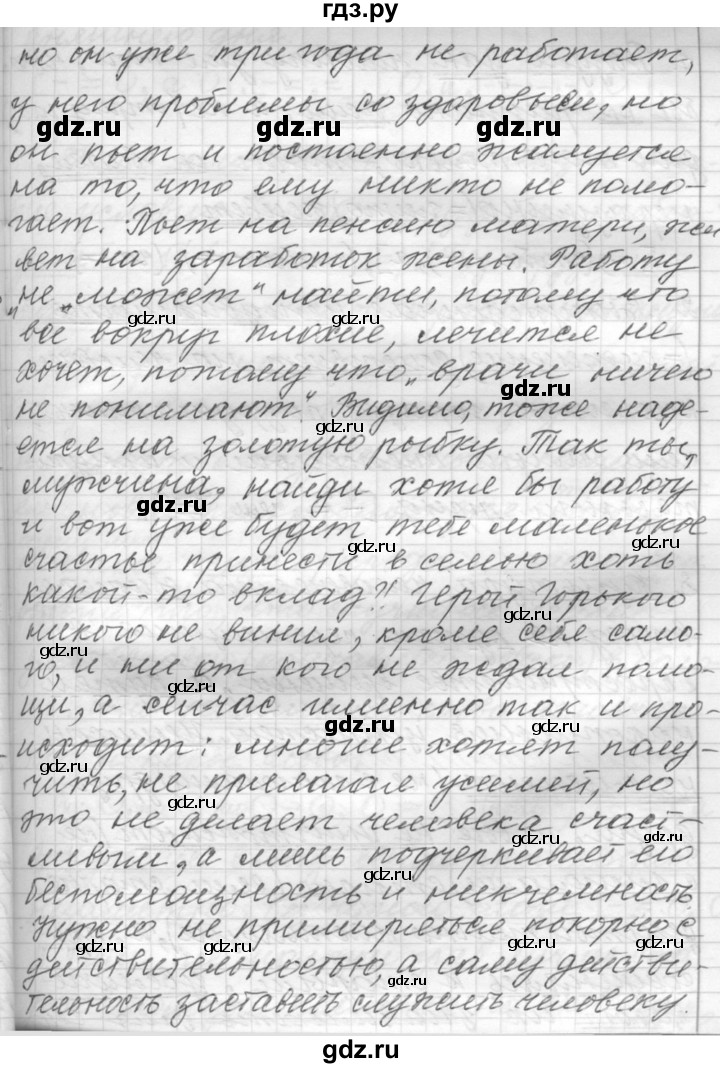 гдз.ру
но он уже три года не работает,
у него проблемы со здоровьем, но
он пьет и постоянно жалуется
на то, что ему никто не помо-
гает. Пьет на пенсию матери, жи
вет на заработок жены. Работу
"не „может" найти, потому что
все вокруг плохие, лечится не
хочет, потому что „врачи ничего
не понимают". Видимо, тоже наде-
ется на золотую рыбку. Так ты,
мужчина, найди хотя бы работу
и вот уже будет тебе маленькое
счастье принести в семью хоть
какой-то вклад?! Герой Горького
никого не винил, кроме себя само-
го, и ни от кого не ждал помо-
щи, а сейчас именно так и про-
исходит: многие хотят полу-
чить, не прилагая усилий, но
это не делает человека счаст-
ливым, а лишь подчеркивает его
беспомощность и никчемность.
Нужно не примиряться покорно с
действительностью, а саму действи-
тельность заставить служить человеку.
gdz.ru